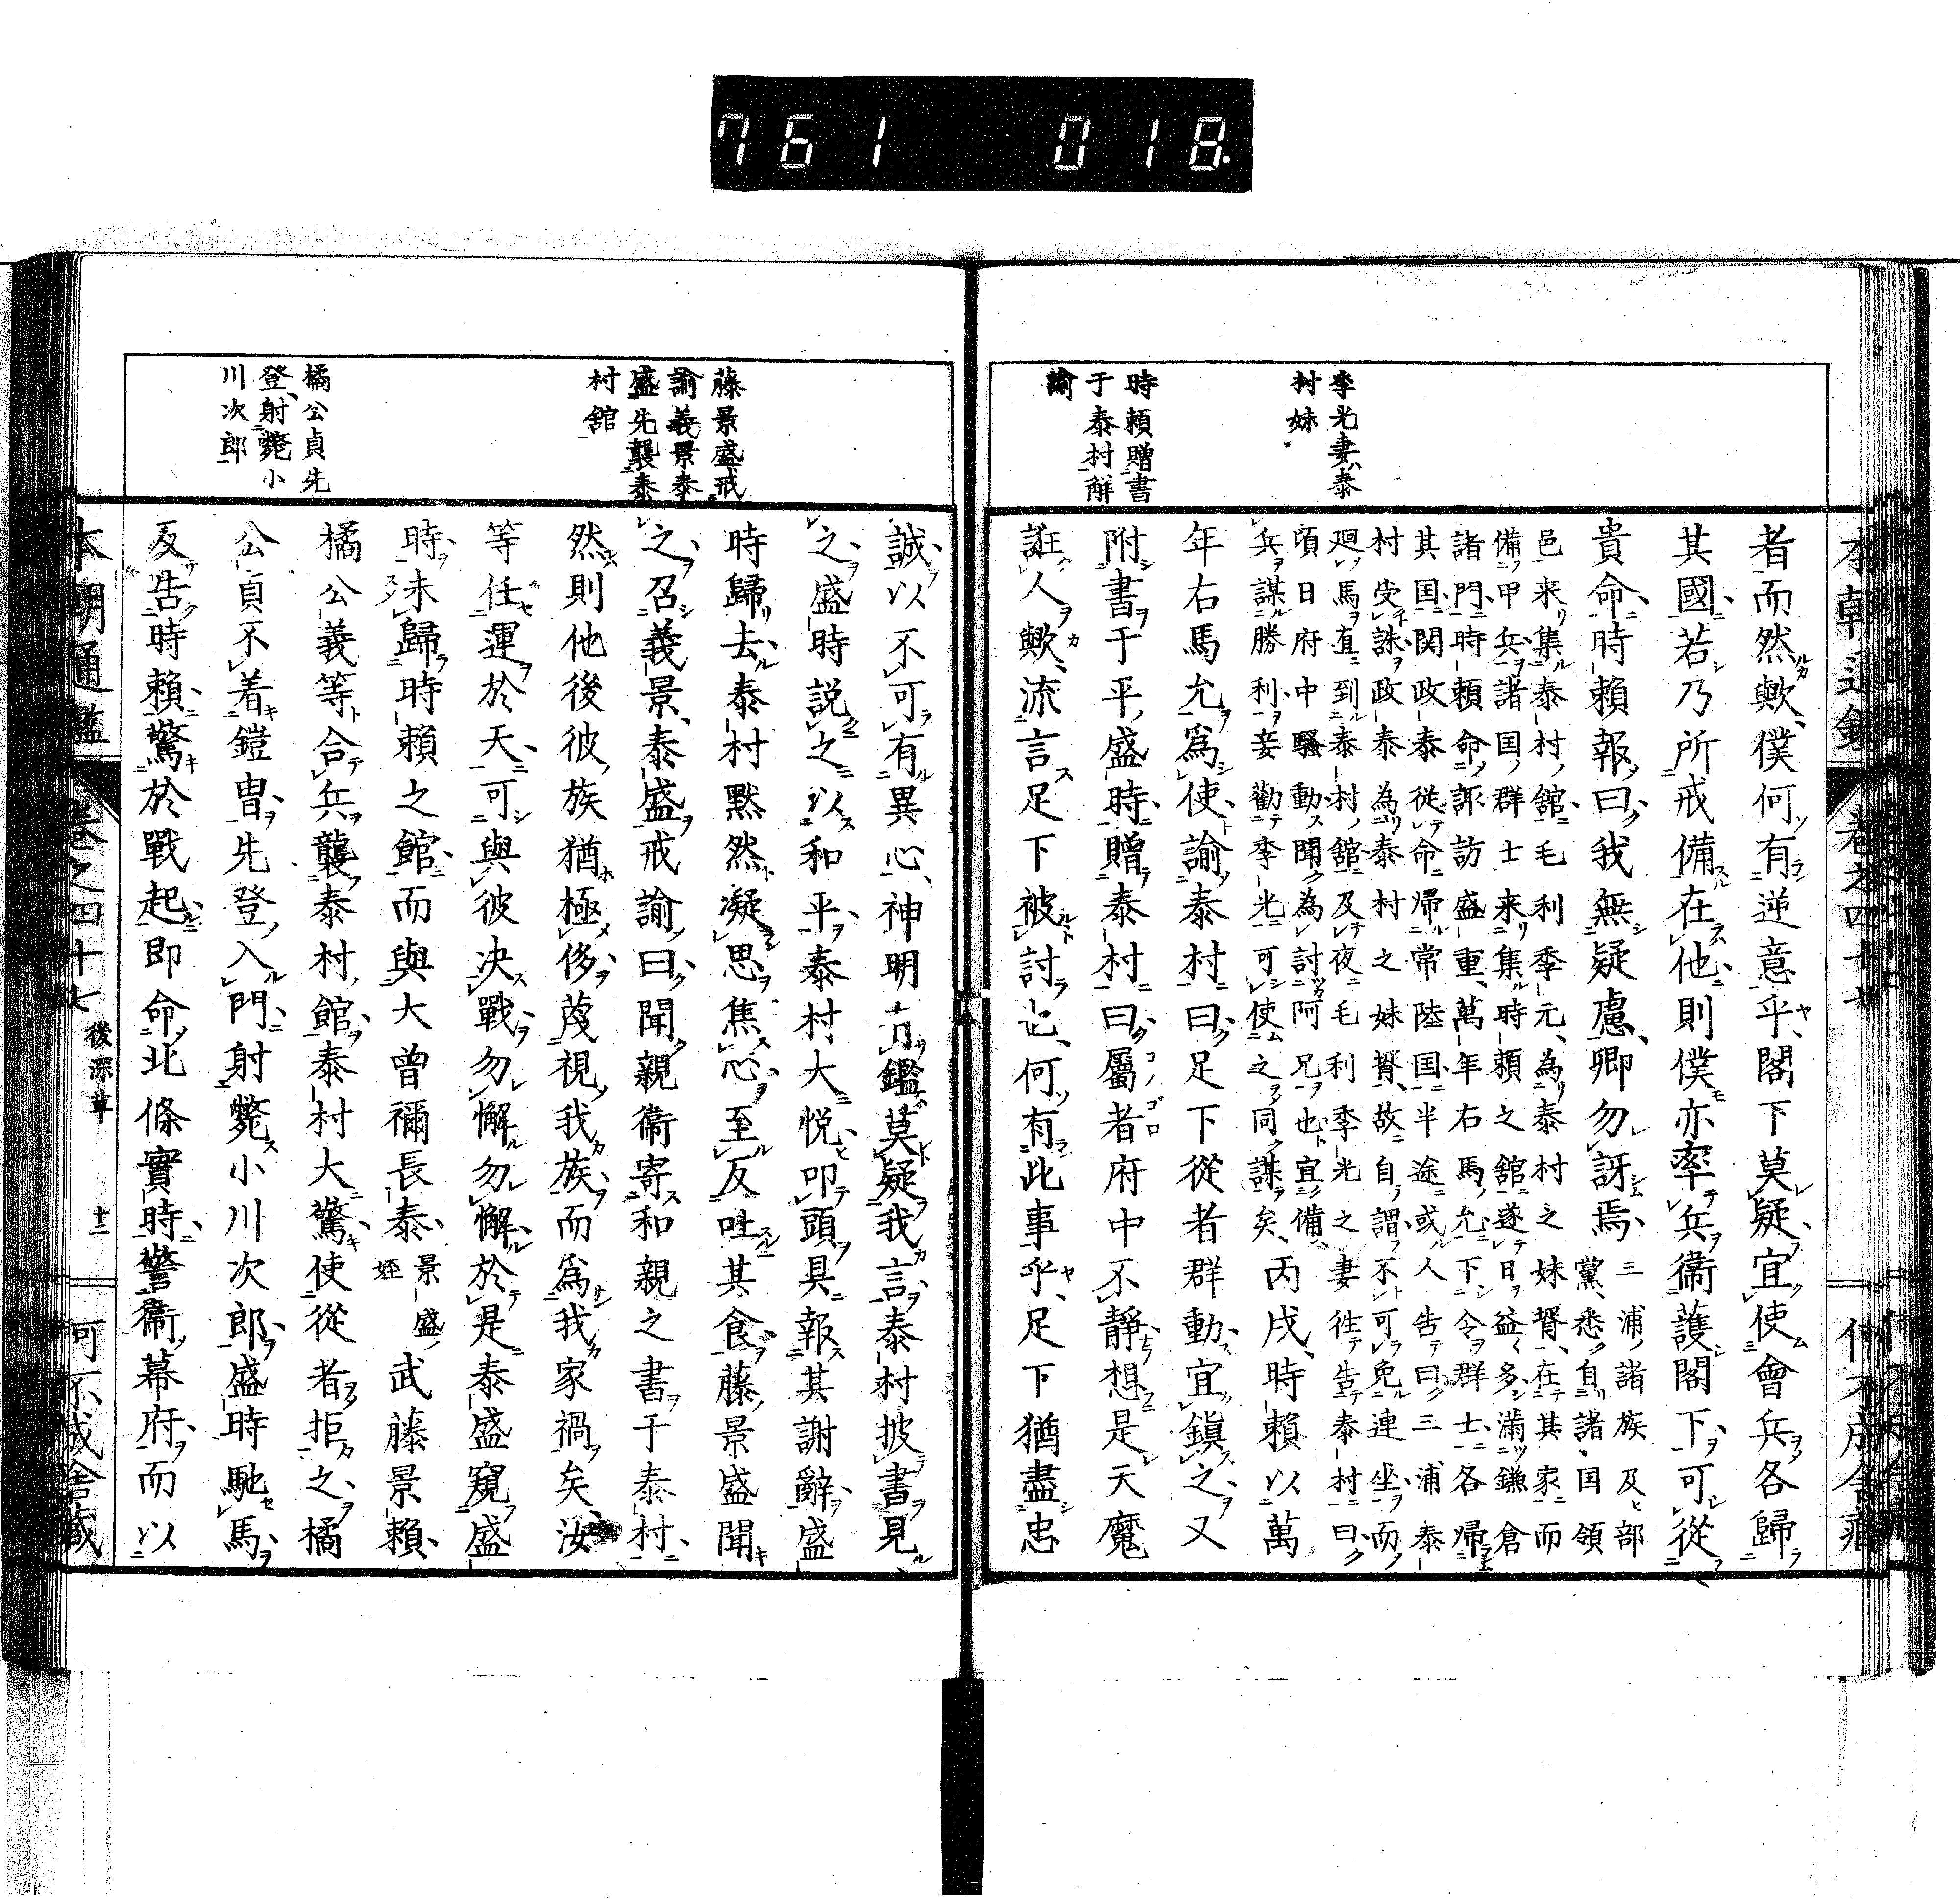 761 018
本朝通鑑 卷之四十七
季光妻泰
村妹
時頼贈書
于泰村解
諭
者而然歟僕何有逆意乎閣下莫疑宜使會兵各歸
其國若乃所戒備在他則僕亦率兵衞護閣下可從
貴命時頼報曰我無疑慮卿勿訝焉
三浦諸族及部
黨悉自諸国領
邑来集泰村館毛利季元為泰村之妹婿在其家而
備甲兵諸国群士来集時頼之館遂日益多滿鎌倉
諸門時頼命諏訪盛重萬年右馬允下令群士各帰
其国関政泰從命帰常陸国半途或人告曰三浦泰
村受誅政泰為泰村之妹婿故自謂不可免連坐而
廻馬直到泰村館及夜毛利季光之妻往告泰村曰
頃日府中騷動聞為討阿兄也宜備
兵謀勝利妾勸季光可使之同謀矣
丙戌時頼以萬
年右馬允爲使諭泰村曰足下從者群動宜鎭之又
附書于平盛時贈泰村曰屬者府中不靜想是天魔
誑人歟流言足下被討也何有此事乎足下猶盡忠
藤景盛戒
諭義景泰
盛先襲泰
村舘
橘公貞先
登射斃小
川次郎
誠以不可有異心神明有鑑莫疑我言泰村披書見
之盛時説之以和平泰村大悦叩頭具報其謝辭盛
時歸去泰村黙然凝思焦心至反吐其食藤景盛聞
之召義景泰盛戒諭曰聞親衞寄和親之書于泰村
然則他後彼族猶極侈蔑視我族而爲我家禍矣汝
等任運於天可與彼决戰勿懈勿懈於是泰盛窺盛
時未歸時頼之館而與大曾禰長泰
景盛
姪
武藤景頼
橘公義等合兵襲泰村館泰村大驚使從者拒之橘
公貞不着鎧冑先登入門射斃小川次郎盛時馳馬
反告時頼驚於戰起即命北條實時警衞幕府而以
本朝通鑑 卷之四十七 後深草 十二